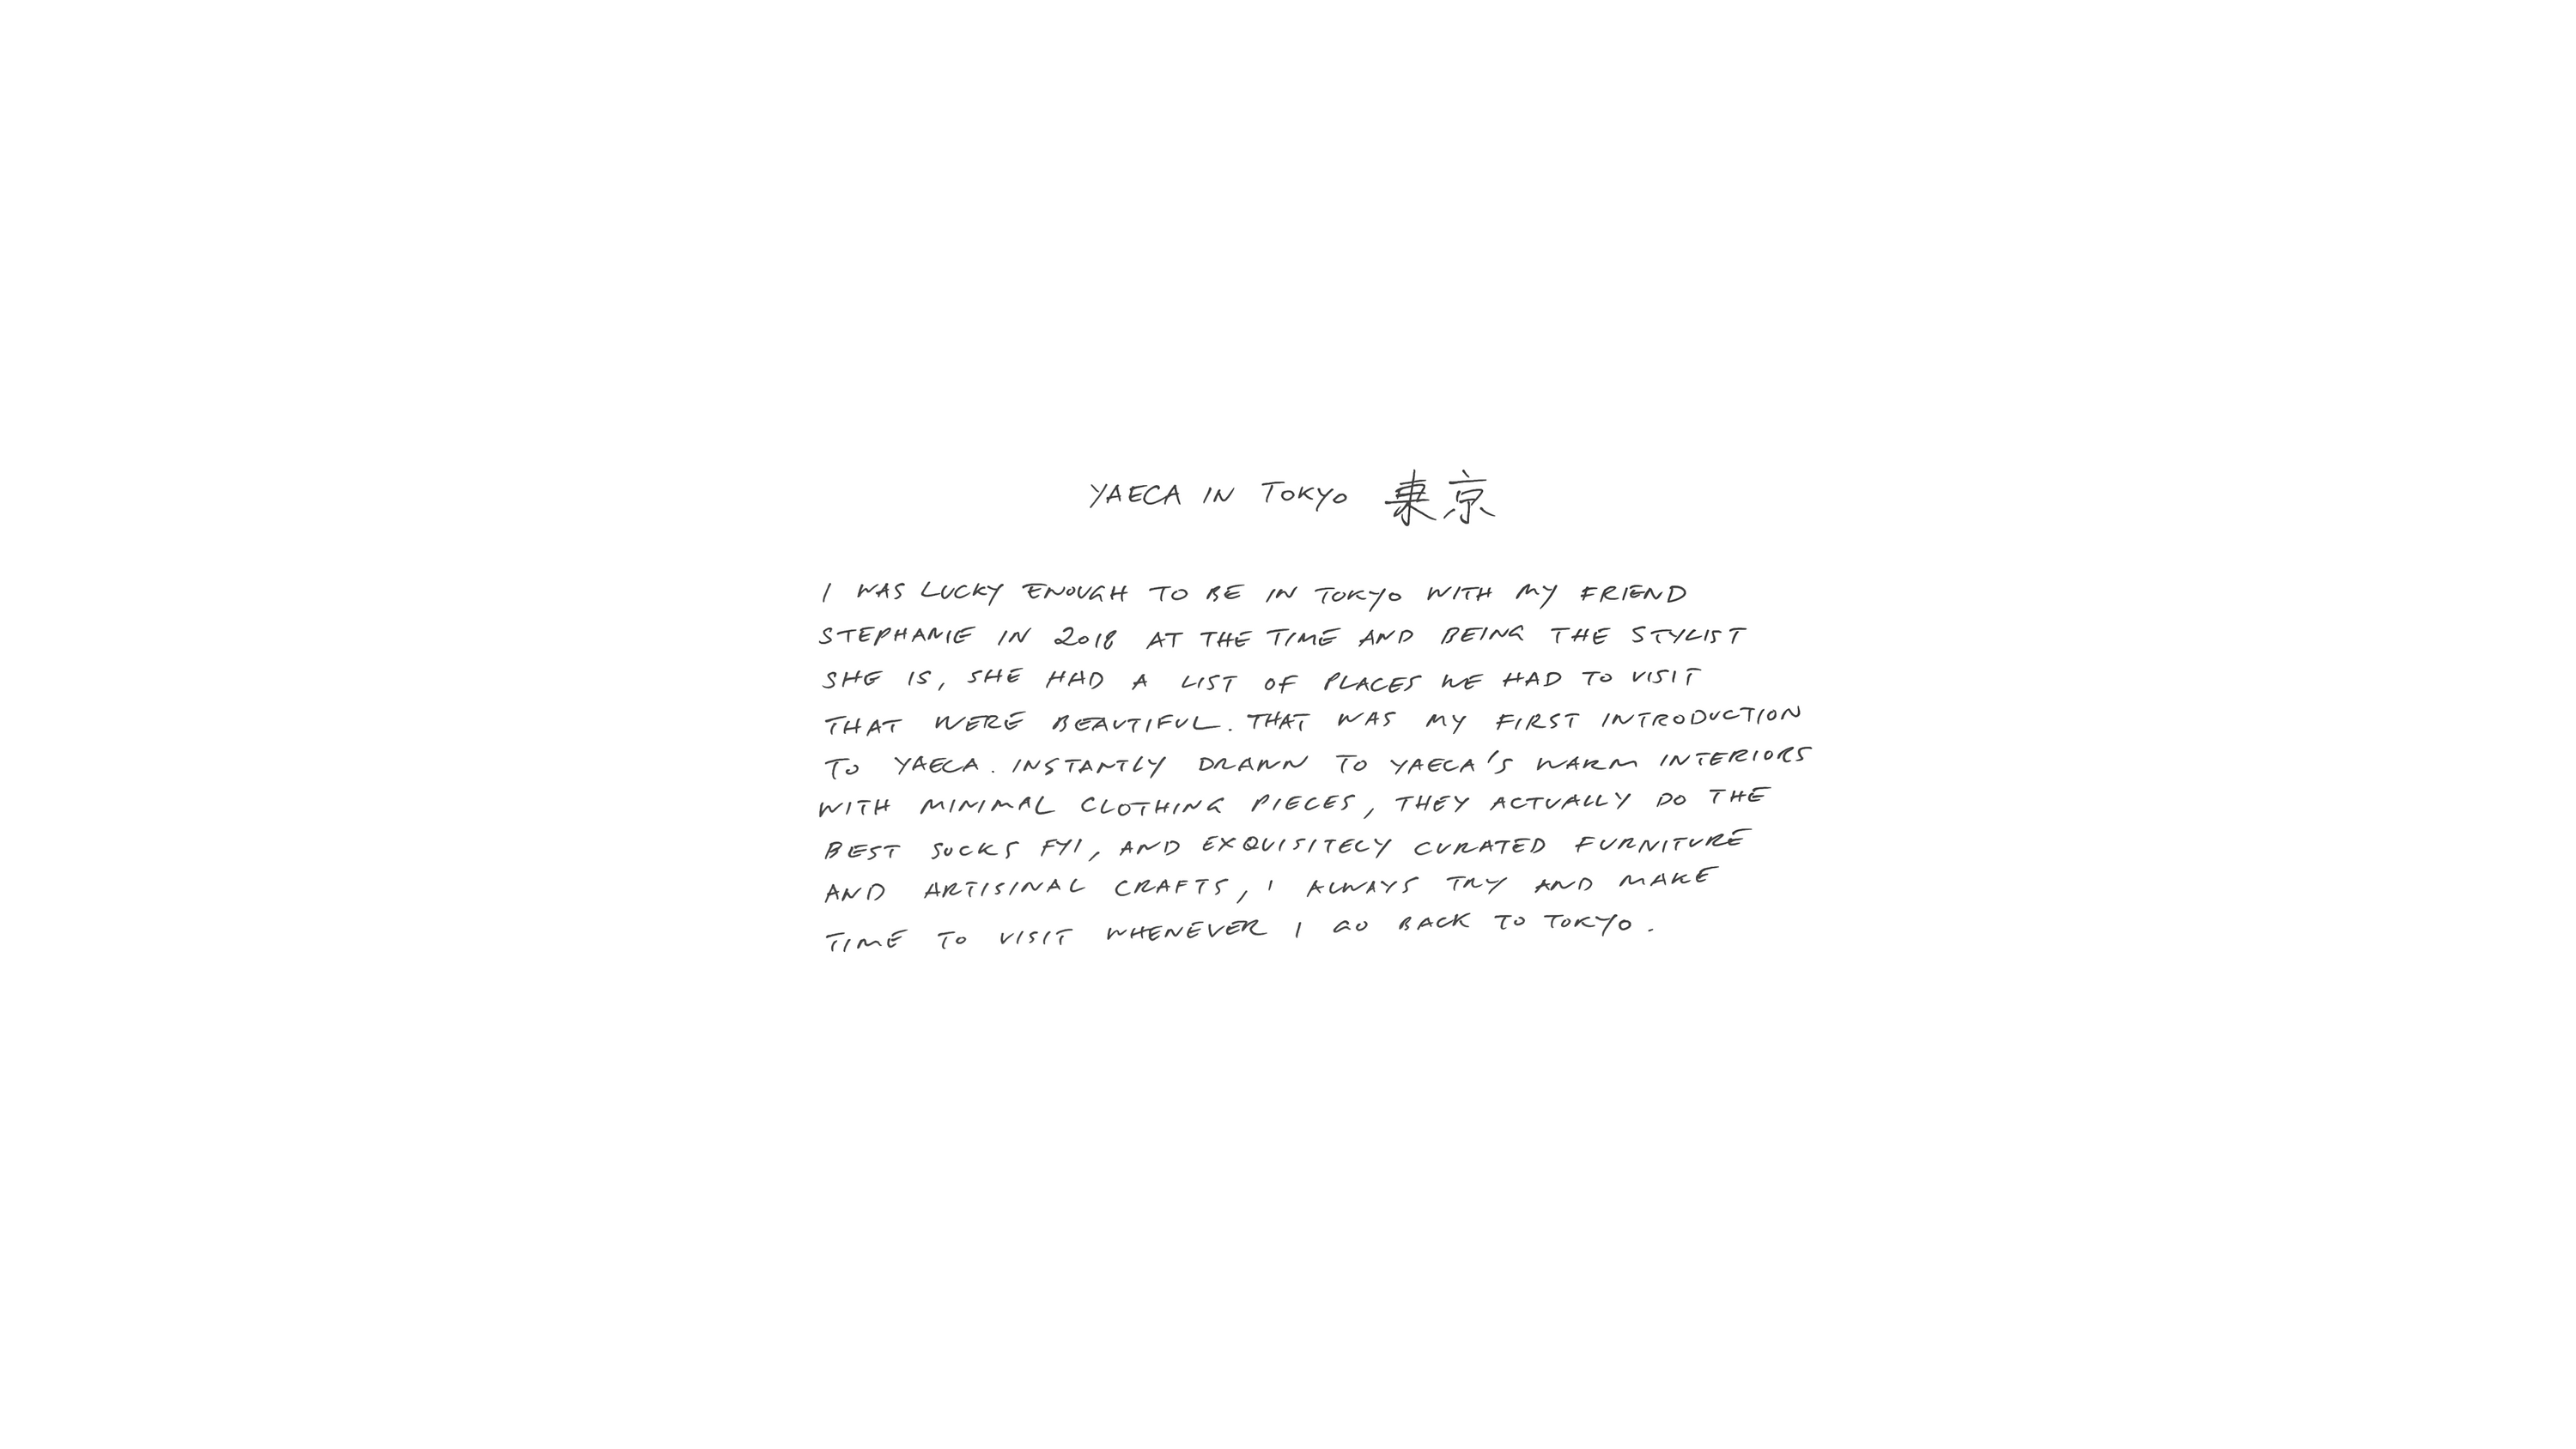 YAECA IN TOKYO 東京
I WAS LUCKY ENOUGH TO BE IN TOKYO WITH MY FRIEND
STEPHANIE IN 2018 AT THE TIME AND BEING THE STYLIST
SHE IS, SHE HAD A LIST OF PLACES WE HAD TO VISIT
THAT WERE BEAUTIFUL. THAT WAS MY FIRST INTRODUCTION
TO YAECA. INSTANTLY DRAWN TO YAECA'S WARM INTERIORS
WITH MINIMAL CLOTHING PIECES, THEY ACTUALLY DO THE
BEST SOCKS FYI, AND EXQUISITELY CURATED FURNITURE
AND ARTISINAL CRAFTS, I ALWAYS TRY AND MAKE
TIME TO VISIT WHENEVER I GO BACK TO TOKYO.